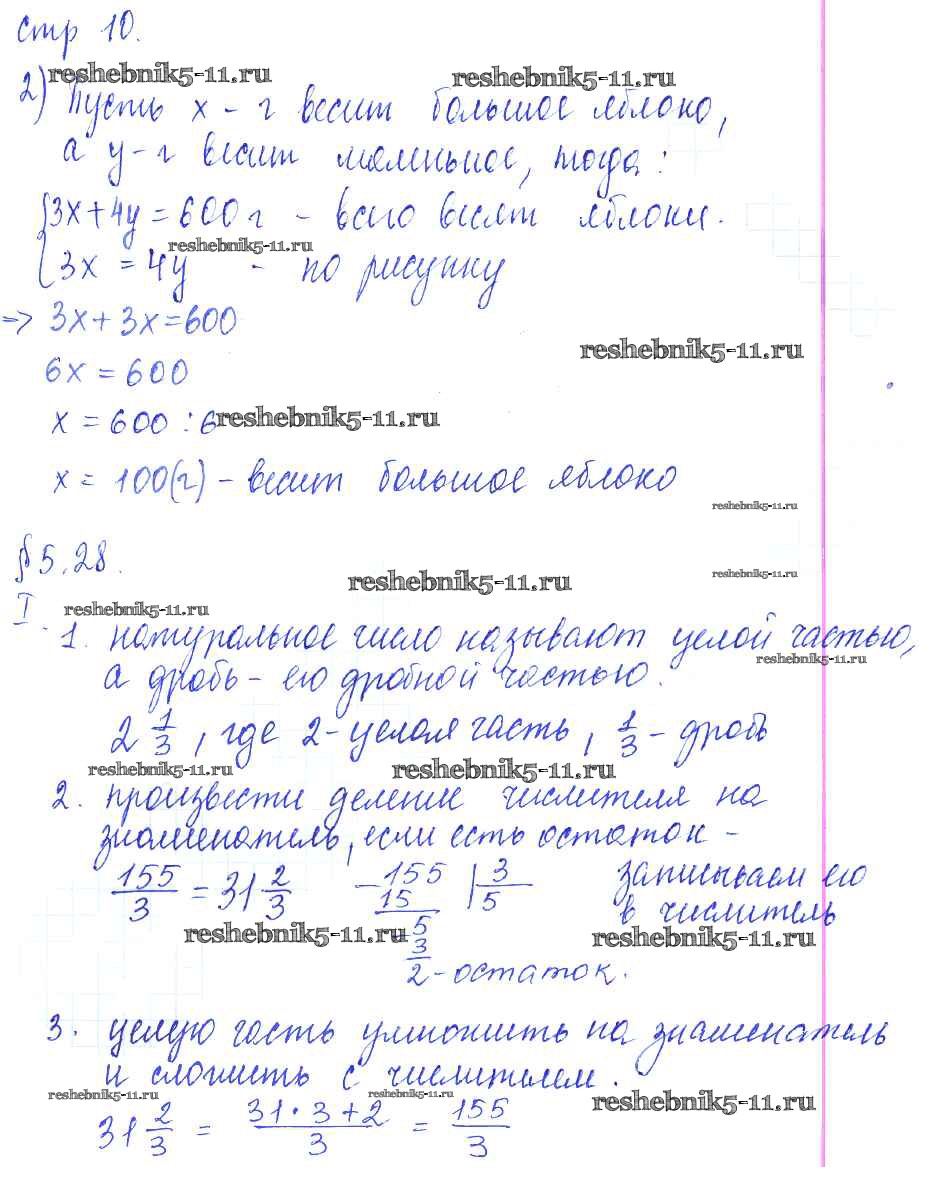 стр 10.
reshebnik5-11.ru reshebnik5-11.ru
2) Пусть x - г весит большое яблоко,
а y - г весит маленькое, тогда:
3x + 4y = 600 г - всего весят яблоки.
reshebnik5-11.ru
3x = 4y - по рисунку
=> 3x + 3x = 600
reshebnik5-11.ru
6x = 600
x = 600 : 6 reshebnik5-11.ru
x = 100 (г) - весит большое яблоко
reshebnik5-11.ru
§ 5.28.
reshebnik5-11.ru reshebnik5-11.ru
I. reshebnik5-11.ru
1. натуральное число называют целой частью,
reshebnik5-11.ru
а дробь - его дробной частью.
2 1/3, где 2 - целая часть, 1/3 - дробь
reshebnik5-11.ru reshebnik5-11.ru
2. произвести деление числителя на
знаменатель, если есть остаток -
155/3 = 31 2/3 - 155 | 3 записываем его
15 5 в числитель
reshebnik5-11.ru - 5 reshebnik5-11.ru
3
2 - остаток.
3. целую часть умножить на знаменатель
и сложить с числителем.
reshebnik5-11.ru reshebnik5-11.ru reshebnik5-11.ru
31 2/3 = 31 · 3 + 2/3 = 155/3